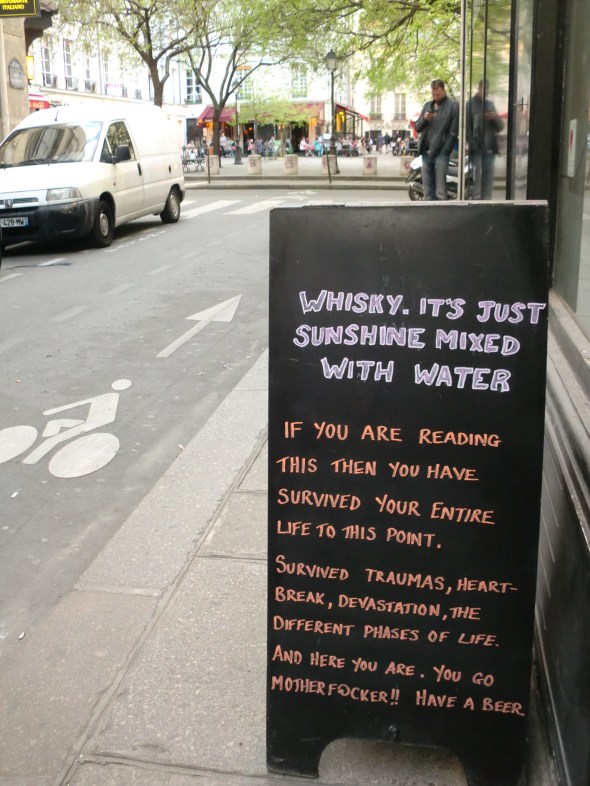 ITALIANO
428 MW
WHISKY. IT'S JUST
SUNSHINE MIXED
WITH WATER
IF YOU ARE READING
THIS THEN YOU HAVE
SURVIVED YOUR ENTIRE
LIFE TO THIS POINT.
SURVIVED TRAUMAS, HEART-
BREAK, DEVASTATION, THE
DIFFERENT PHASES OF LIFE.
AND HERE YOU ARE. YOU GO
MOTHERF@CKER!! HAVE A BEER